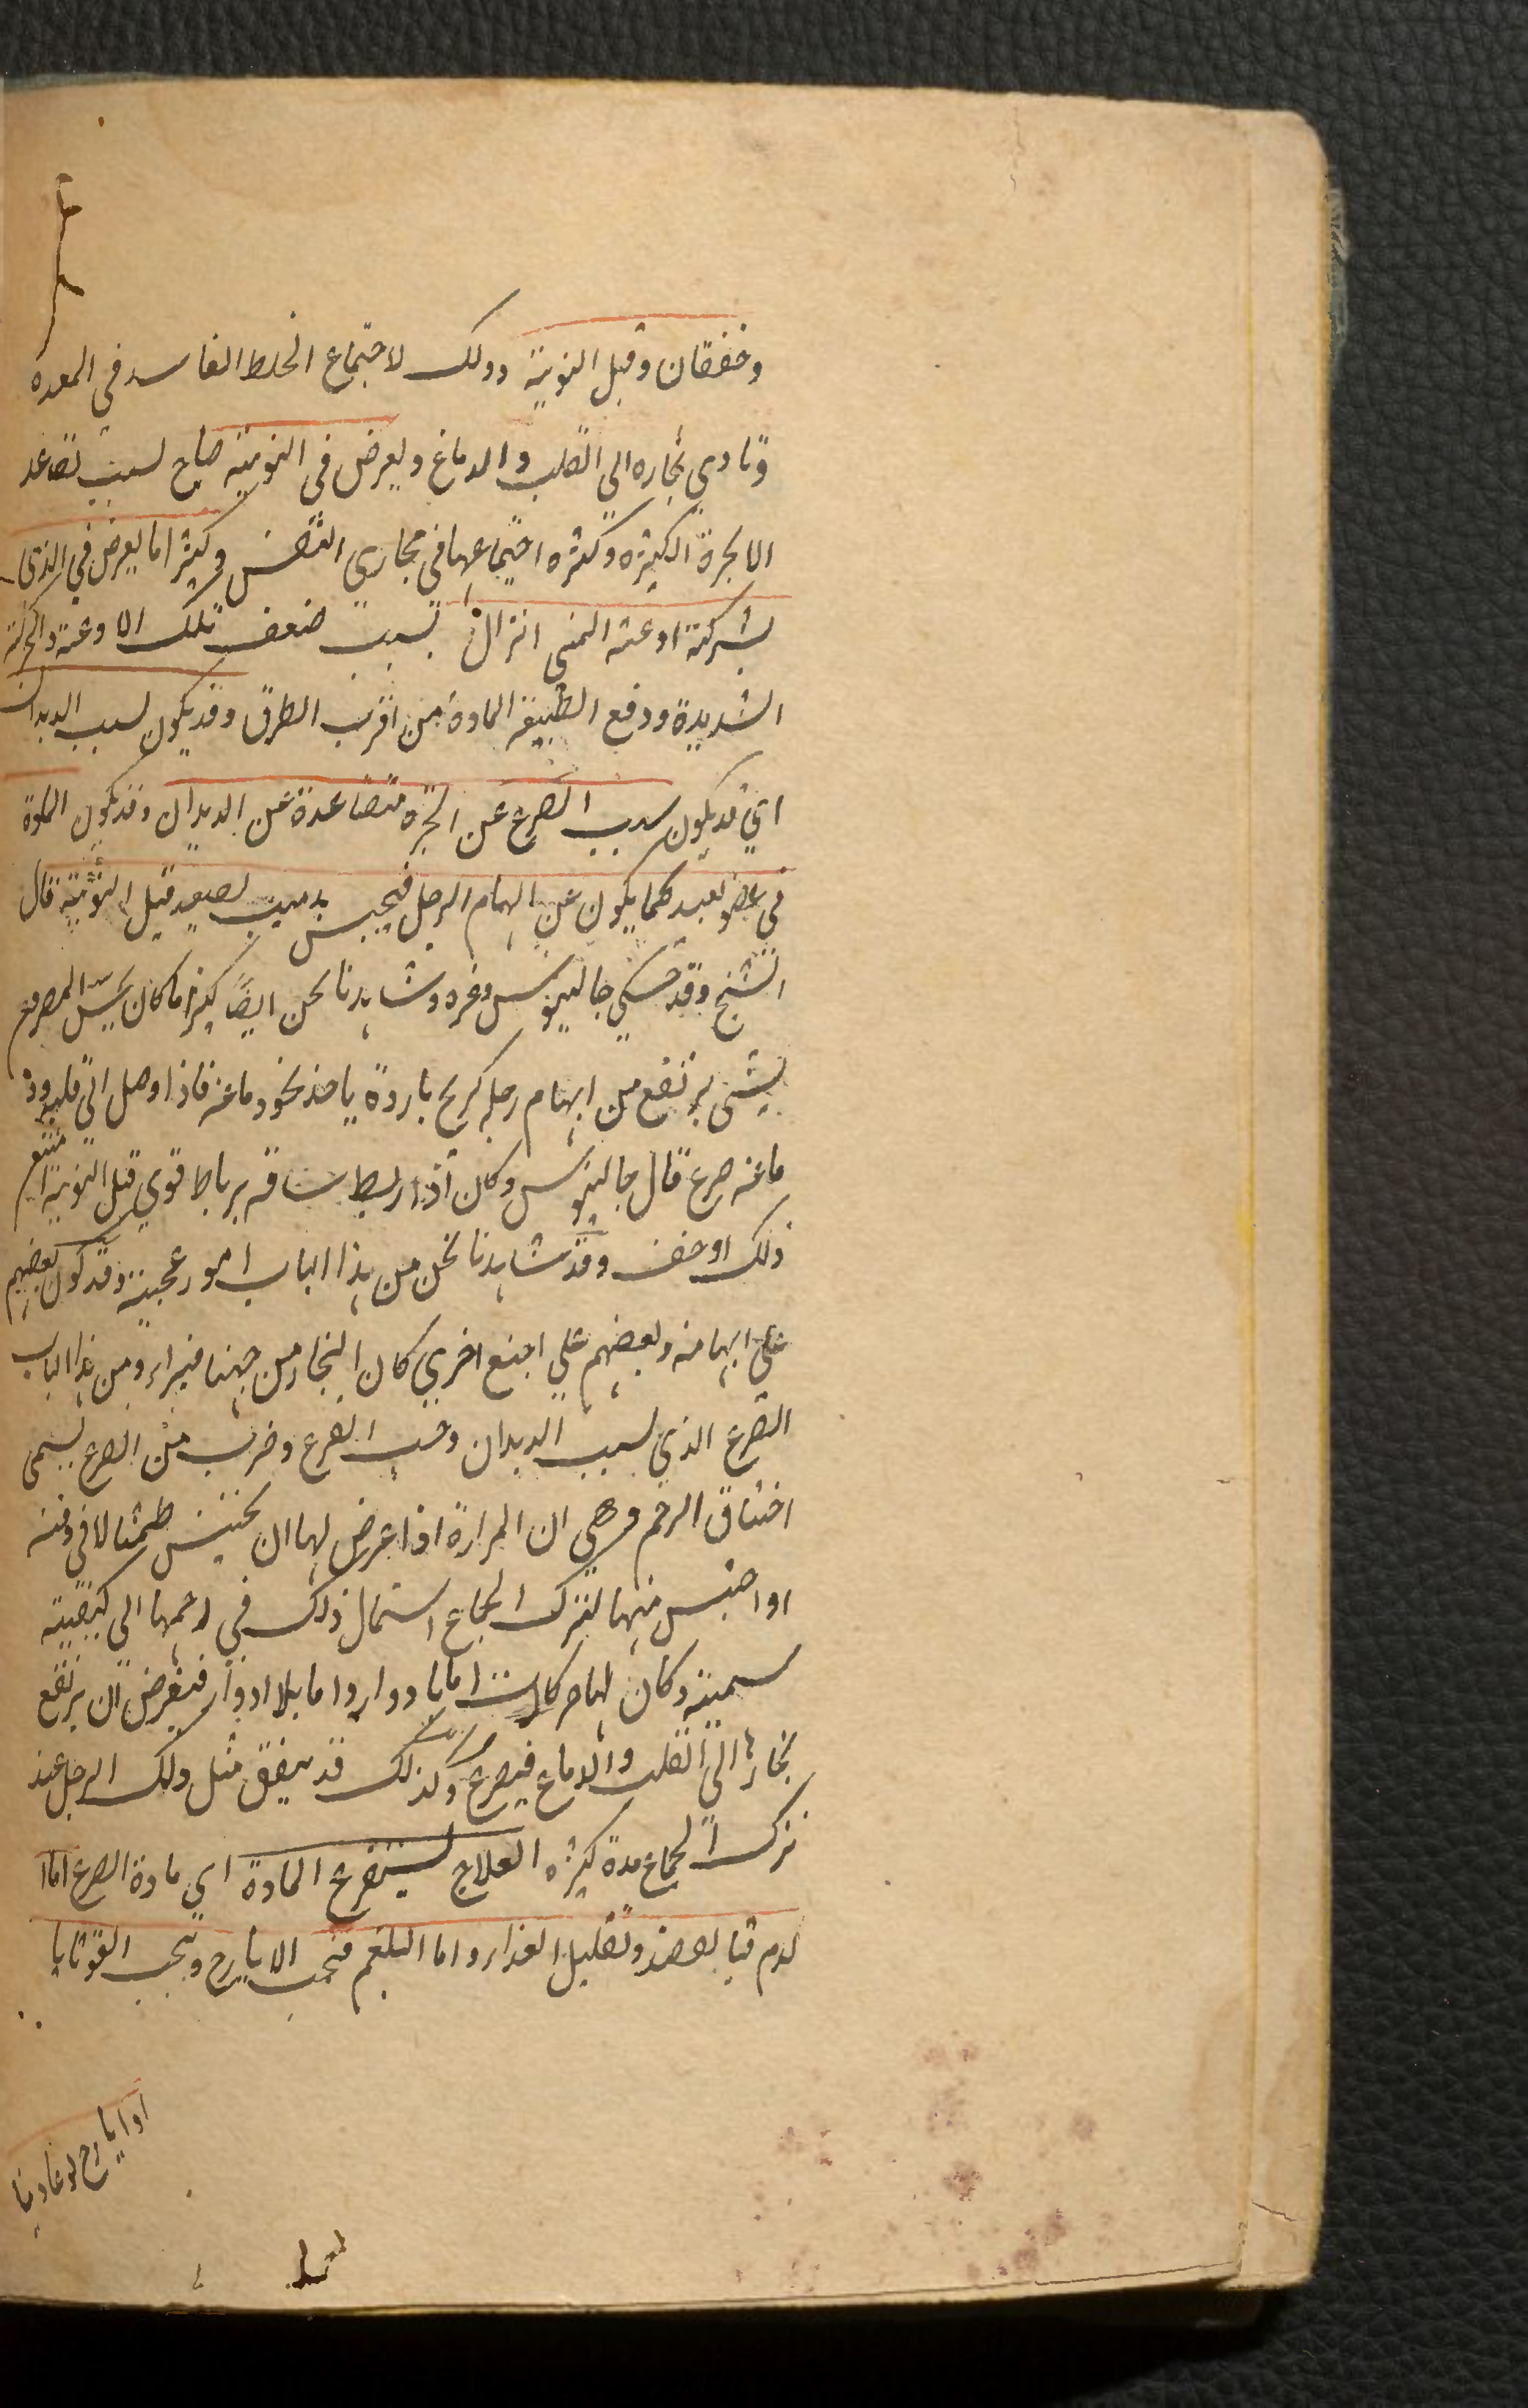 وخفقان وقبل النوبة وذلك لاجتماع الخلط الفاسد في المعده
وتادي بخاره الي القلب والدماغ ويعرض في النوبة صياح لسبب تصاعد
الابخرة الكثيرة وكثره اجتماعها في مجاري التنفس وكثيرا ما يعرض في الذي
بشركة اوعية المني انزال بسبب ضعف تلك الاوعية والحركة
الشديدة ودفع الطبيعة المادة من اقرب الطرق وقد يكون لسبب الديدان
اي قد يكون سبب الصرع عن ابخرة متصاعدة عن الديدان وقد يكون المادة
في عضو بعيد كما يكون عن ابهام الرجل فيحبس بدبيب يصعد قبل النوبة قال
الشيخ وقد حكي جالينوس وغيره وشاهدنا نحن ايضا كثيرا ما كان يحس المصروع
بشي يرتفع من ابهام رجله كريح باردة ياخذ نحو دماغه فاذا وصل الي قلبه ود
ماغه صرع قال جالينوس وكان اذا ربط ساقه برباط قوي قبل النوبة امتنع
ذلك او خف وقد شاهدنا نحن من هذا الباب امور عجيبة وقد كوي بعضهم
علي ابهامه وبعضهم علي اصبع اخري كان البخار من جهتها فبراء ومن هذا الباب
الصرع الذي لسبب الديدان وحب القرع وضرب من الصرع يسمي
اختناق الرحم وهي ان المراة اذا عرض لها ان يحتبس طمثها لا في وقته
او احتبس منيها لترك الجماع استحال ذلك في رحمها الي كيفية
سمية وكان لها حركات اما بادوار واما بلا ادوار فيعرض ان يرتفع
بخارها الي القلب والدماغ فيصرع وكذلك قد يتفق مثل ذلك الرجل عند
ترك الجماع مدة كثيرة العلاج يستفرغ المادة اي مادة الصرع اما ا
لدم فبالفصد وتقليل الغذاء واما البلغم فبحب الايارج وبحب القوقايا
او ايارج لوغاديا